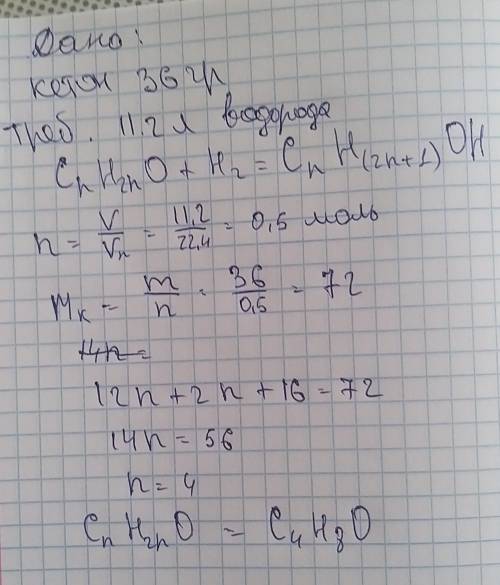 Дано:
кетон 36 гр
треб. 11.2 л водорода
CnH2nO + H2 = CnH(2n+1)OH
n = V/Vn = 11,2/22,4 = 0,5 моль
Mк = m/n = 36/0,5 = 72
14n =
12n + 2n + 16 = 72
14n = 56
n = 4
CnH2nO = C4H8O